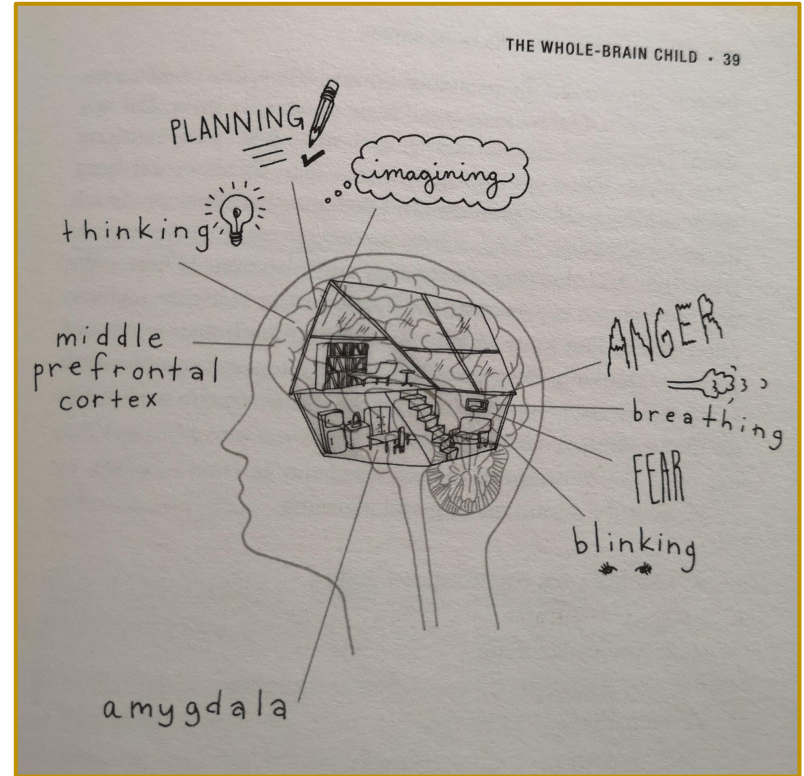 THE WHOLE-BRAIN CHILD • 39
PLANNING
imagining
thinking
middle
prefrontal
cortex
ANGER
breathing
FEAR
blinking
amygdala